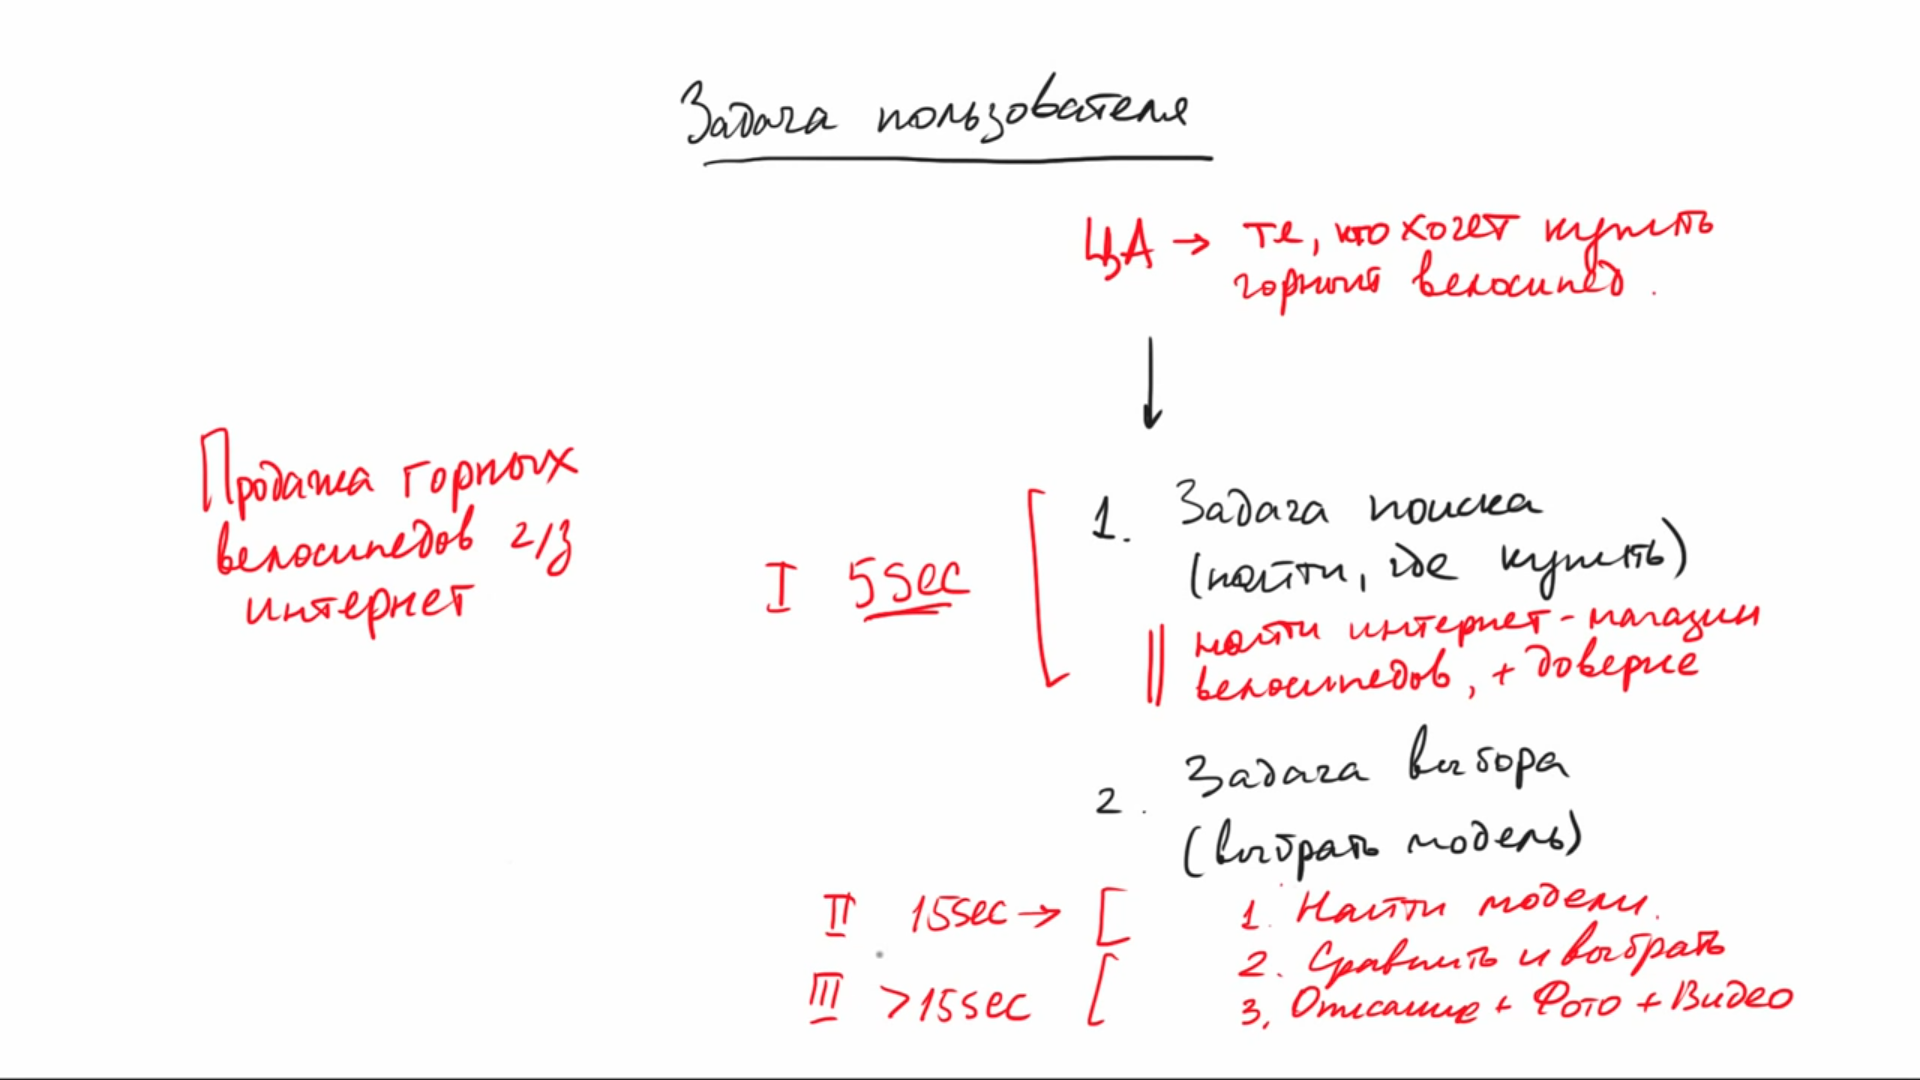 Задача пользователя
ЦА → те, кто хочет купить
горный велосипед.
Продажа горных
велосипедов ч/з
интернет
I 5 sec
1. Задача поиска
(найти, где купить)
найти интернет-магазин
велосипедов, + доверие
2. Задача выбора
(выбрать модель)
II 15 sec →
1. Найти модели.
2. Сравнить и выбрать
III >15 sec
3. Описание + Фото + Видео